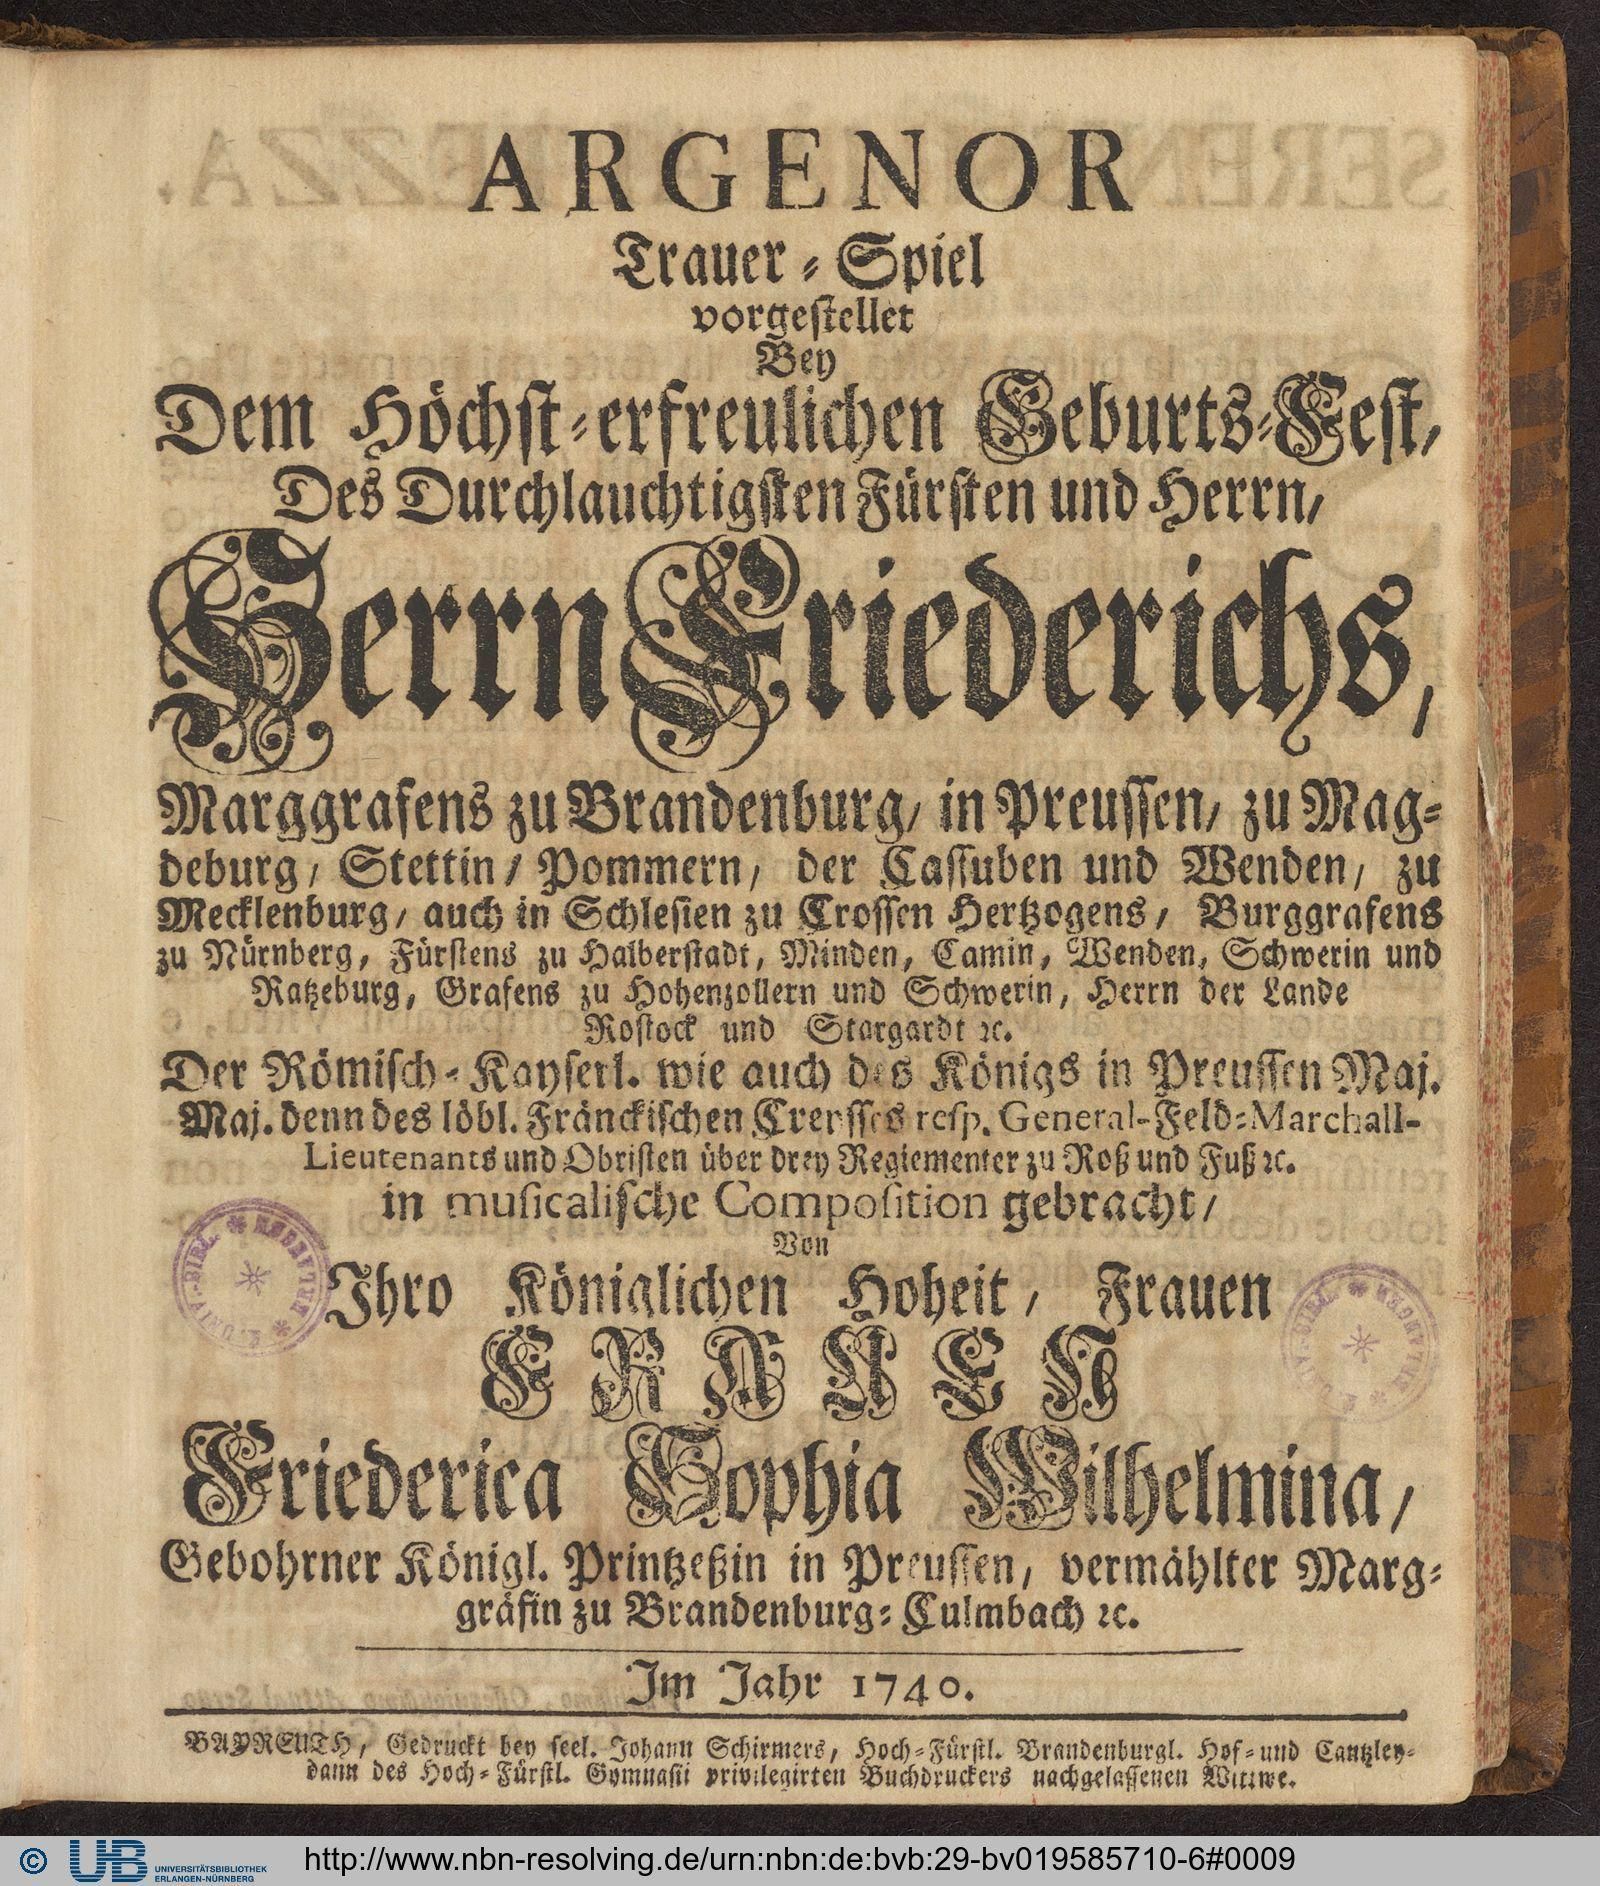 ARGENOR
Trauer-Spiel
vorgestellet
Bey
Dem Höchst-erfreulichen Geburts-Fest,
Des Durchlauchtigsten Fürsten und Herrn,
Herrn Friederichs,
Marggrafens zu Brandenburg, in Preussen, zu Mag-
deburg, Stettin, Pommern, der Cassuben und Wenden, zu
Mecklenburg, auch in Schlesien zu Crossen Hertzogens, Burggrafens
zu Nürnberg, Fürstens zu Halberstadt, Minden, Camin, Wenden, Schwerin und
Ratzeburg, Grafens zu Hohenzollern und Schwerin, Herrn der Lande
Rostock und Stargardt ꝛc.
Der Römisch-Kayserl. wie auch des Königs in Preussen Maj.
Maj. denn des löbl. Fränckischen Creysses resp. General-Feld-Marchall-
Lieutenants und Obristen über drey Regiementer zu Roß und Fuß ꝛc.
in musicalische Composition gebracht,
Von
Ihro Königlichen Hoheit, Frauen
FRAUEN
Friederica Sophia Wilhelmina,
Gebohrner Königl. Printzeßin in Preussen, vermählter Marg-
gräfin zu Brandenburg-Culmbach ꝛc.
Im Jahr 1740.
BAYREUTH, Gedruckt bey seel. Johann Schirmers, Hoch-Fürstl. Brandenburgl. Hof-und Cantzley-
dann des Hoch-Fürstl. Gymnasii privilegirten Buchdruckers nachgelassenen Wittwe.
K. UNIV.-BIBL. * ERLANGEN *
K. UNIV.-BIBL. * ERLANGEN *
© UB UNIVERSITÄTSBIBLIOTHEK
ERLANGEN-NÜRNBERG
http://www.nbn-resolving.de/urn:nbn:de:bvb:29-bv019585710-6#0009